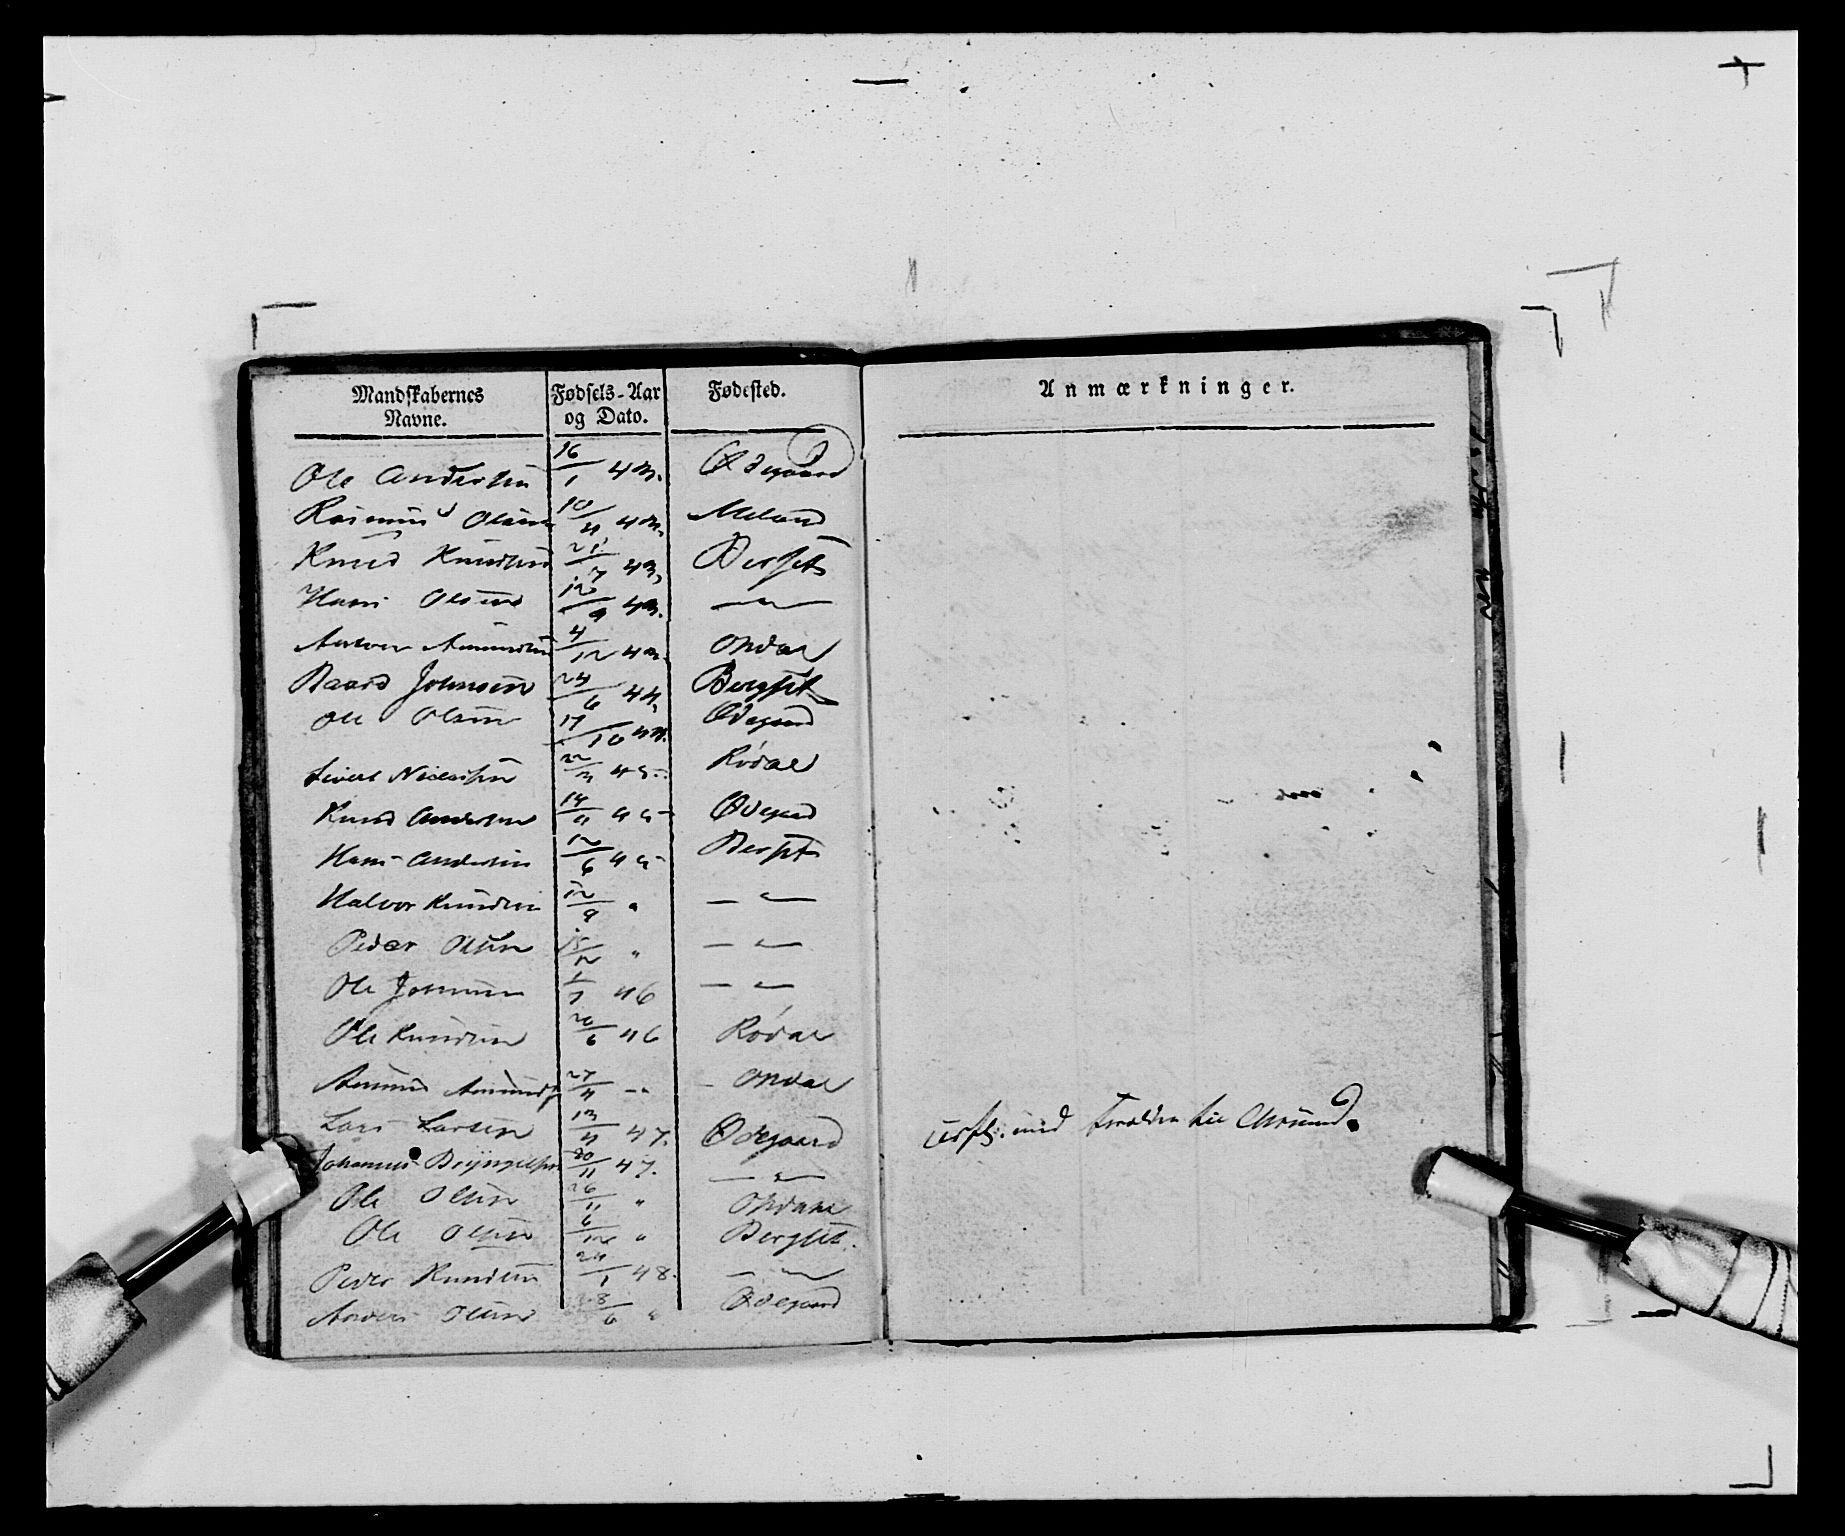 Mandskabernes Navne. Fødsels-Aar og Dato. Fødested. Anmærkninger.
Ole Andersen 16/1 43. Ødegaard
Rasmus Olsen 10/4 43. Meland
Knud Knudsen 21/7 43, Bersets
Hans Olsen 12/9 43. — " —
Amund Amundsen 4/12 43. Opdal
Baard Johnsen 24/6 44, Bergset
Ole Olsen 17/10 44. Ødegaard
Sivert 22/3 45 Rødal
Knud Andersen 14/4 45 Ødegaard
Hans Andersen 12/6 45 Berset
Halvor Knudsen 12/9 " — " —
Peder Olsen 15/12 " — " —
Ole Johnsen 1/1 46 — " —
Ole Knudsen 20/6 46 Rødal
Amund Amunds 27/4 — " Opdal
Lars Larsen 13/4 47. Ødegaard
Johannes Brynjelsen 20/11 47. — " —
Ole Olsen 26/11 " Opdal
Ole Olsen 6/12 " Bergset.
Peder Knudsen 24/1 48. — " —
Anders Olsen 28/6 " Ødegaard